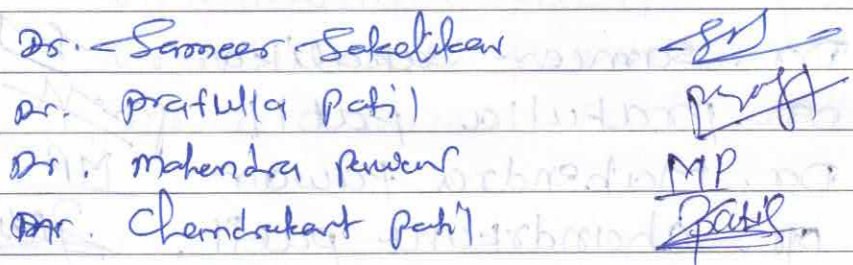 Dr. Sameer Sakalikar
Dr. prafulla Patil
Dr. Mahendra Pawar MP
Dr. Chandrakant Patil Patil